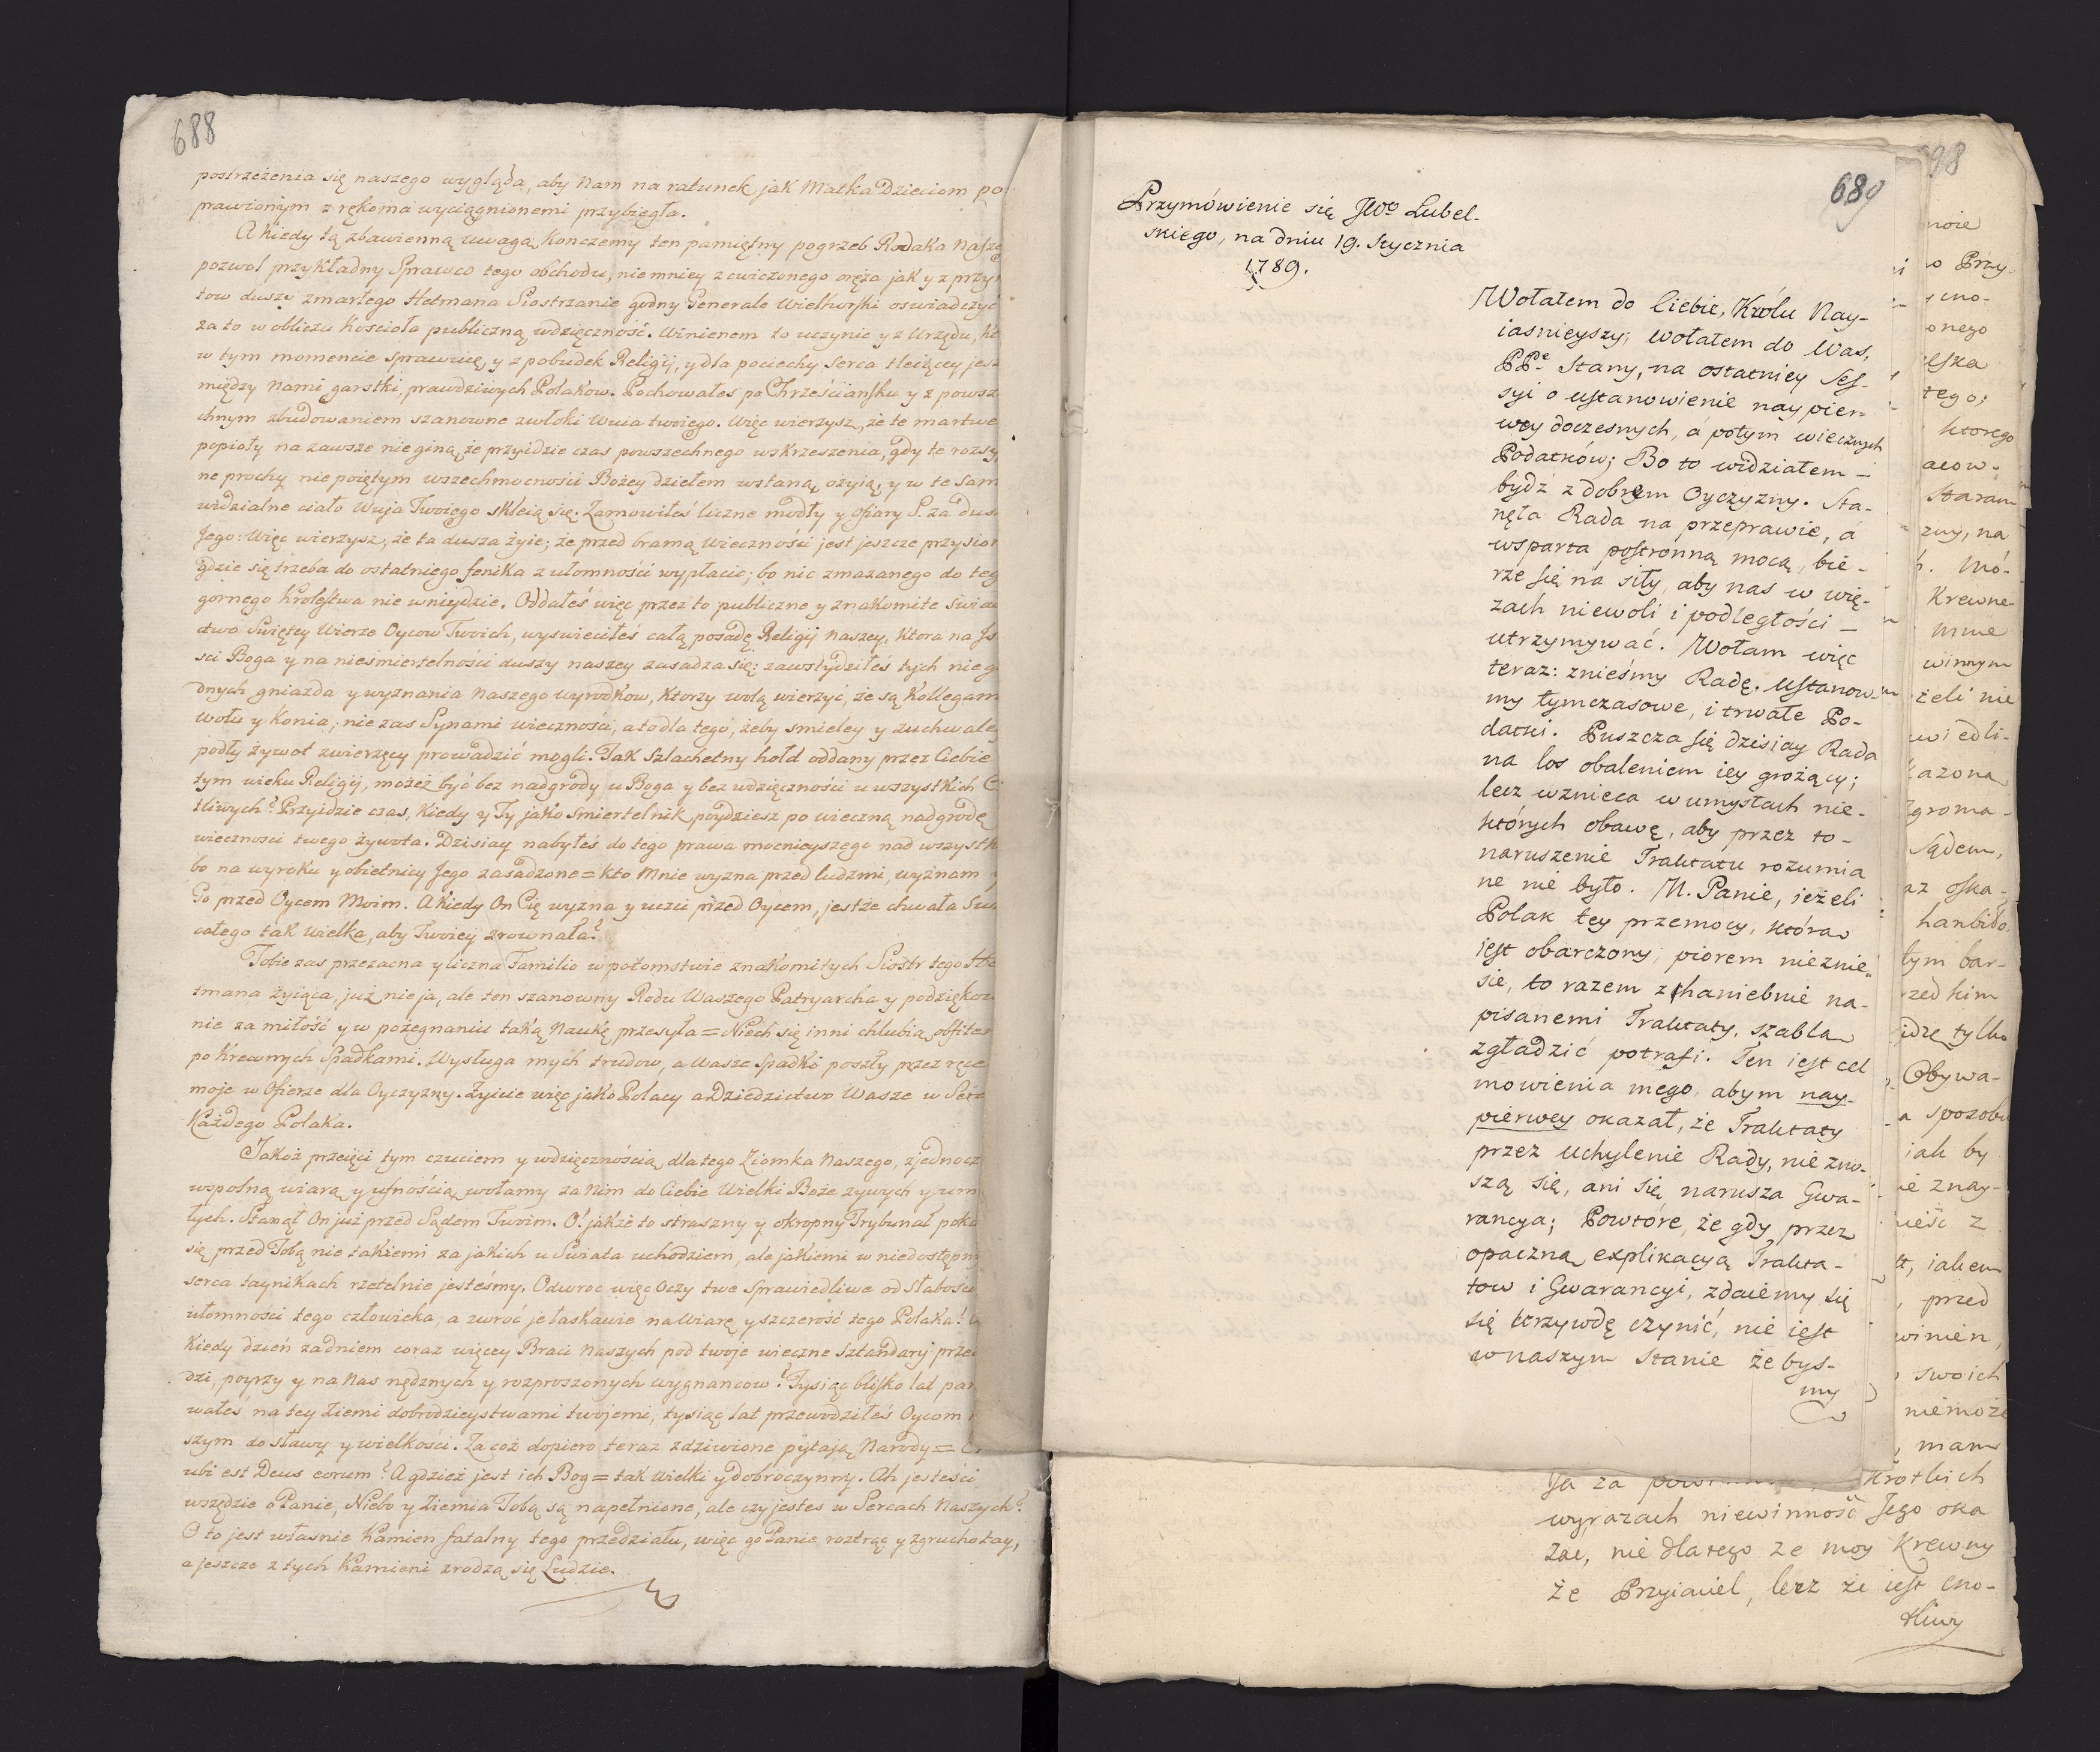 688
postrzeżenia się naszego wygląda, aby nam na ratunek jak Matka Dzieciom po
prawionym z rękoma wyciągnionemi przybiegła.
A kiedy tą zbawienną uwagą konczemy ten pamiętny pogrzeb Rodaka Nasze
pozwol przykładny Sprawco tego obchodu, niemniey z cwiczonego oręża jak y z przy
tow duszy zmarłego Hetmana Siostrzanie godny Generale Wielhorski oswiadczyć
za to w obliczu Koscioła publiczną wdzięczność. Winienem to uczynić y z Urzędu, kt
w tym momencie sprawuię, y z pobudek Religij, y dla pociechy serca tleiącey jesz
między nami garstki, prawdziwych Polakow. Pochowałes po Chrześciańsku y z powsz
chnym zbudowaniem szanowne zwłoki Wuia twoiego. Więc wierzysz, że te martwe
popioły na zawsze nie giną, że przyidzie czas powszechnego wskrzeszenia, gdy te rozsy
ne prochy niepoiętym wszechmocności Bożey dziełem wstaną, ożyią, y w te sam
widzialne ciało Wuja Twoiego skleią się. Zamowiłeś liczne modły y ofiary S. za dus
Jego: Więc wierzysz, że ta dusza żyie; że przed bramą wieczności jest jeszcze przysion
gdzie się trzeba do ostatniego fenika z ułomności wypłacić; bo nic zmazanego do teg
gornego Krolestwa nie wniydzie. Oddałeś więc przez to publiczne y znakomite swiad
ctwo Swiętey Wierze Oycow Twoich, wyswieciłeś całą posadę Religij naszey, ktora na Js
sci Boga y na nieśmiertelności duszy naszey zasadza się: zawstydziłeś tych nieg
dnych gniazda y wyznania naszego wyrodkow, ktorzy wolą wierzyć, że są Kollegam
wołu y konia, nie zas Synami wieczności, a to dla tego, żeby smieley y zuchwale
podły żywot zwierzęcy prowadzić mogli. Tak szlachetny hołd oddany przez Ciebie
tym wieku Religij, możeż być bez nadgrody u Boga y bez wdzięczności u wszystkich C
tliwych? Przyidzie czas, kiedy y Ty jako smiertelnik poydziesz po wieczną nadgrodę
wieczności twego żywota. Dzisiay nabyłeś do tego prawa mocnieyszego nad wszystk
bo na wyroku y obietnicy Jego zasadzone = kto Mnie wyzna przed ludzmi, wyznam y
Go przed Oycem Moim. A kiedy On Cię wyzna y uczci przed Oycem, jestże chwała Swi
całego tak wielka, aby Twoiey zrownała?
Tobie zas przezacna y liczna Familio w potomstwie znakomitych Siostr tego He
tmana żyiąca, już nie ja, ale ten szanowny Rodu Waszego Patryarcha y podzięko
nie za miłość y w pożegnaniu taką naukę przesyła = Niech się inni chlubią obfite
po krewnych Spadkami. Wysługa mych trudow, a Wasze Spadki poszły przez ręce
moje w Ofierze dla Oyczyzny. Żyicie więc jako Polacy a Dziedzictwo Wasze w Ser
Każdego Polaka.
Jakoż przeięci tym czuciem y wdzięcznością dla tego Ziomka Naszego, zjednocz
wspolną wiarą y ufnością wołamy za nim do Ciebie Wielki Boże żywych y um
łych. Stanął On już przed Sądem Twoim. O! jakże to straszny y okropny Trybunał poka
się przed Tobą nie takiemi za jakich u Swiata uchodziem, ale jakiemi w niedostępny
serca taynikach rzetelnie jesteśmy. Odwroc więc Oczy twe Sprawiedliwe od Słabośc
ułomności tego człowieka, a zwróć je łaskawie na Wiarę y szczerość tego Polaka!
Kiedy dzień za dniem coraz więcey Braci naszych pod twoje wieczne Sztandary prze
dzi, poyrzy y na nas nędznych y rozproszonych wygnancow! Tysiąc blisko lat pan
wałes na tey ziemi dobrodzieystwami twojemi, tysiąc lat przewodziłeś Oycom
szym do sławy y wielkości. Za coż dopiero teraz zdziwione pytają Narody =
ubi est Deus eorum? A gdzież jest ich Bog = tak wielki y dobroczynny. Ah jesteści
wszędzie o Panie, Niebo y Ziemia Tobą są napełnione, ale czy jestes w Sercach Naszych?
O to jest własnie Kamien fatalny tego przedziału, więc go Panie roztrąc y zgruchotay,
a jeszcze z tych Kamieni zrodzą się Ludzie.
689
Przymówienie się JWo Lubel-
skiego, na dniu 19. Stycznia
1789.
Wołałem do Ciebie, Królu Nay-
iasnieyszy; wołałem do Was,
PPe Stany, na ostatniey Ses-
syi o ustanowienie naypier-
wey doczesnych, a potym wiecznych
Podatków; Bo to widziałem –
bydz z dobrem Oyczyzny. Sta-
nęła Rada na przeprawie, á
wsparta postronną mocą, bie-
rze się na siły, aby nas w wię-
zach niewoli i podległości –
utrzymywać. Wołam więc
teraz: znieśmy Radę. Ustanow-
my tymczasowe, i trwałe Po-
datki. Puszcza się dzisiay Rada
na los obaleniem iey grożący;
lecz wznieca w umysłach nie-
których obawę, aby przez to –
naruszenie Traktatu rozumia
ne nie było. M. Panie, jeżeli
Polak tey przemocy, którą
jest obarczony, piorem nieznie
sie, to razem z haniebnie na-
pisanemi Traktaty, szablą
zgładzić potrafi. Ten iest cel
mowienia mego, abym nay-
pierwey okazał, że Traktaty
przez uchylenie Rady, nie zno-
szą się, ani się narusza Gwa-
rancya; Powtóre, że gdy przez
opaczną explikacyą Trakta-
tow i Gwarancyi, zdaiemy się
się krzywdę czynić, nie iest
w naszym stanie żebys-
my
98
noie
o Przy-
cno-
onego
elska
tego;
ktorego
acow-
staran
zny, na
. Mó-
Krewne-
mnie
winnym
żeli nie
wiedli-
kazona
zgroma-
Sądem,
az oska-
hanbiło.
tym bar-
rzed kim
idzę tylko
Obywa-
a sposobu
iak by
ie znay-
nieść z
, iakem
, przed
winien,
swoich
niemoże
, mam
Ja za krotkich
wyrazach niewinność Jego oka
zac, nie dlatego ze moy Krewny
że Przyiaciel, lecz że iest cno-
tliwy